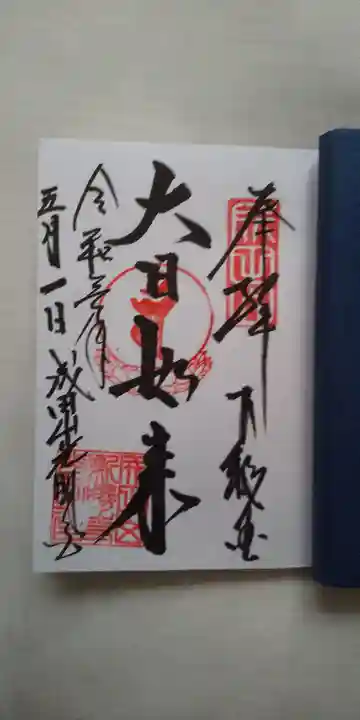 奉拝 下総国
大日如来
令和三年
五月一日 成田山光明堂